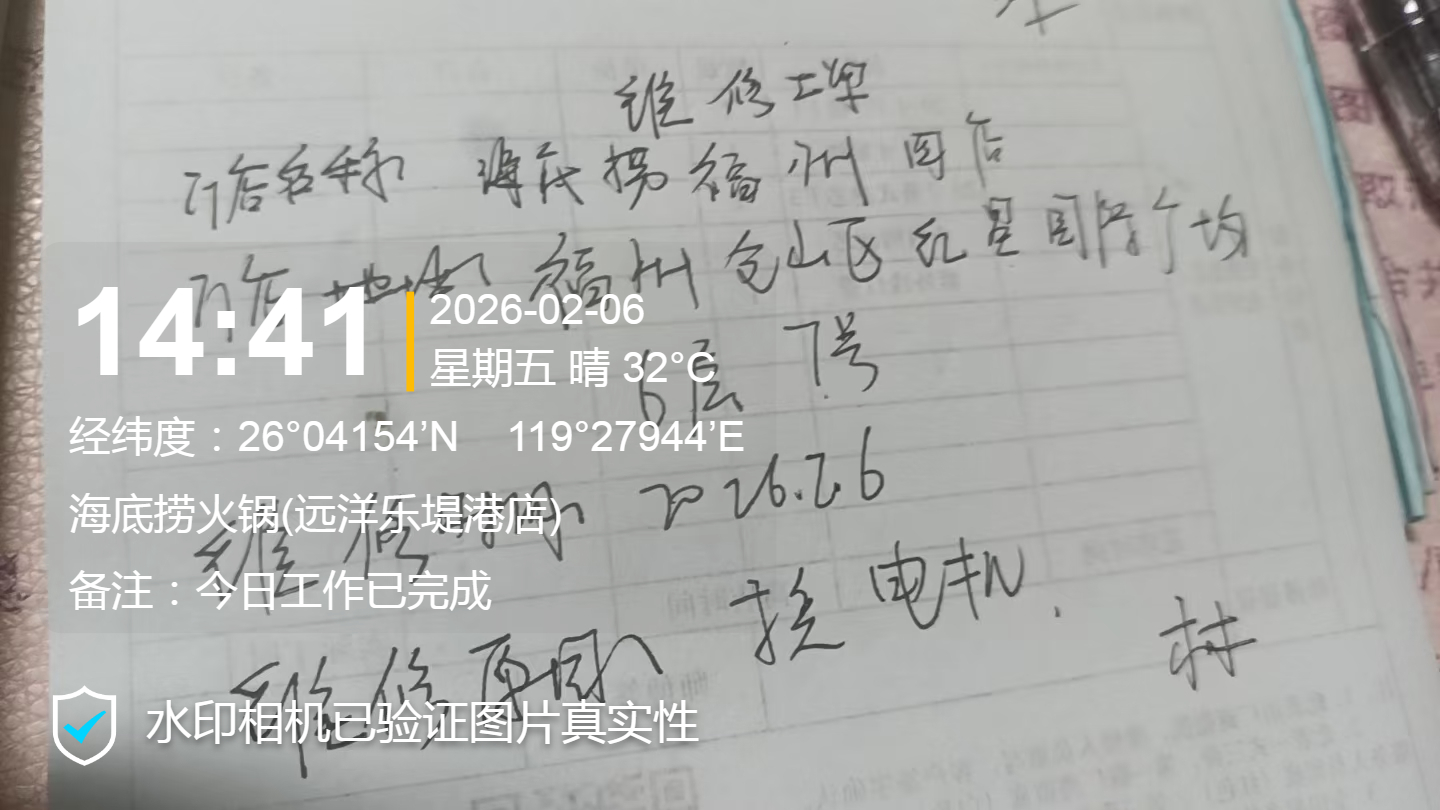 维修工单
门店名称 海底捞福州国店
门店地址 福州仓山区红星国际广场
6层 7号
14:41
2026-02-06
星期五 晴 32°C
经纬度：26°04154’N 119°27944’E
维修时间 2026.2.6
海底捞火锅(远洋乐堤港店)
备注：今日工作已完成
维修原因 换电机.
林
水印相机已验证图片真实性